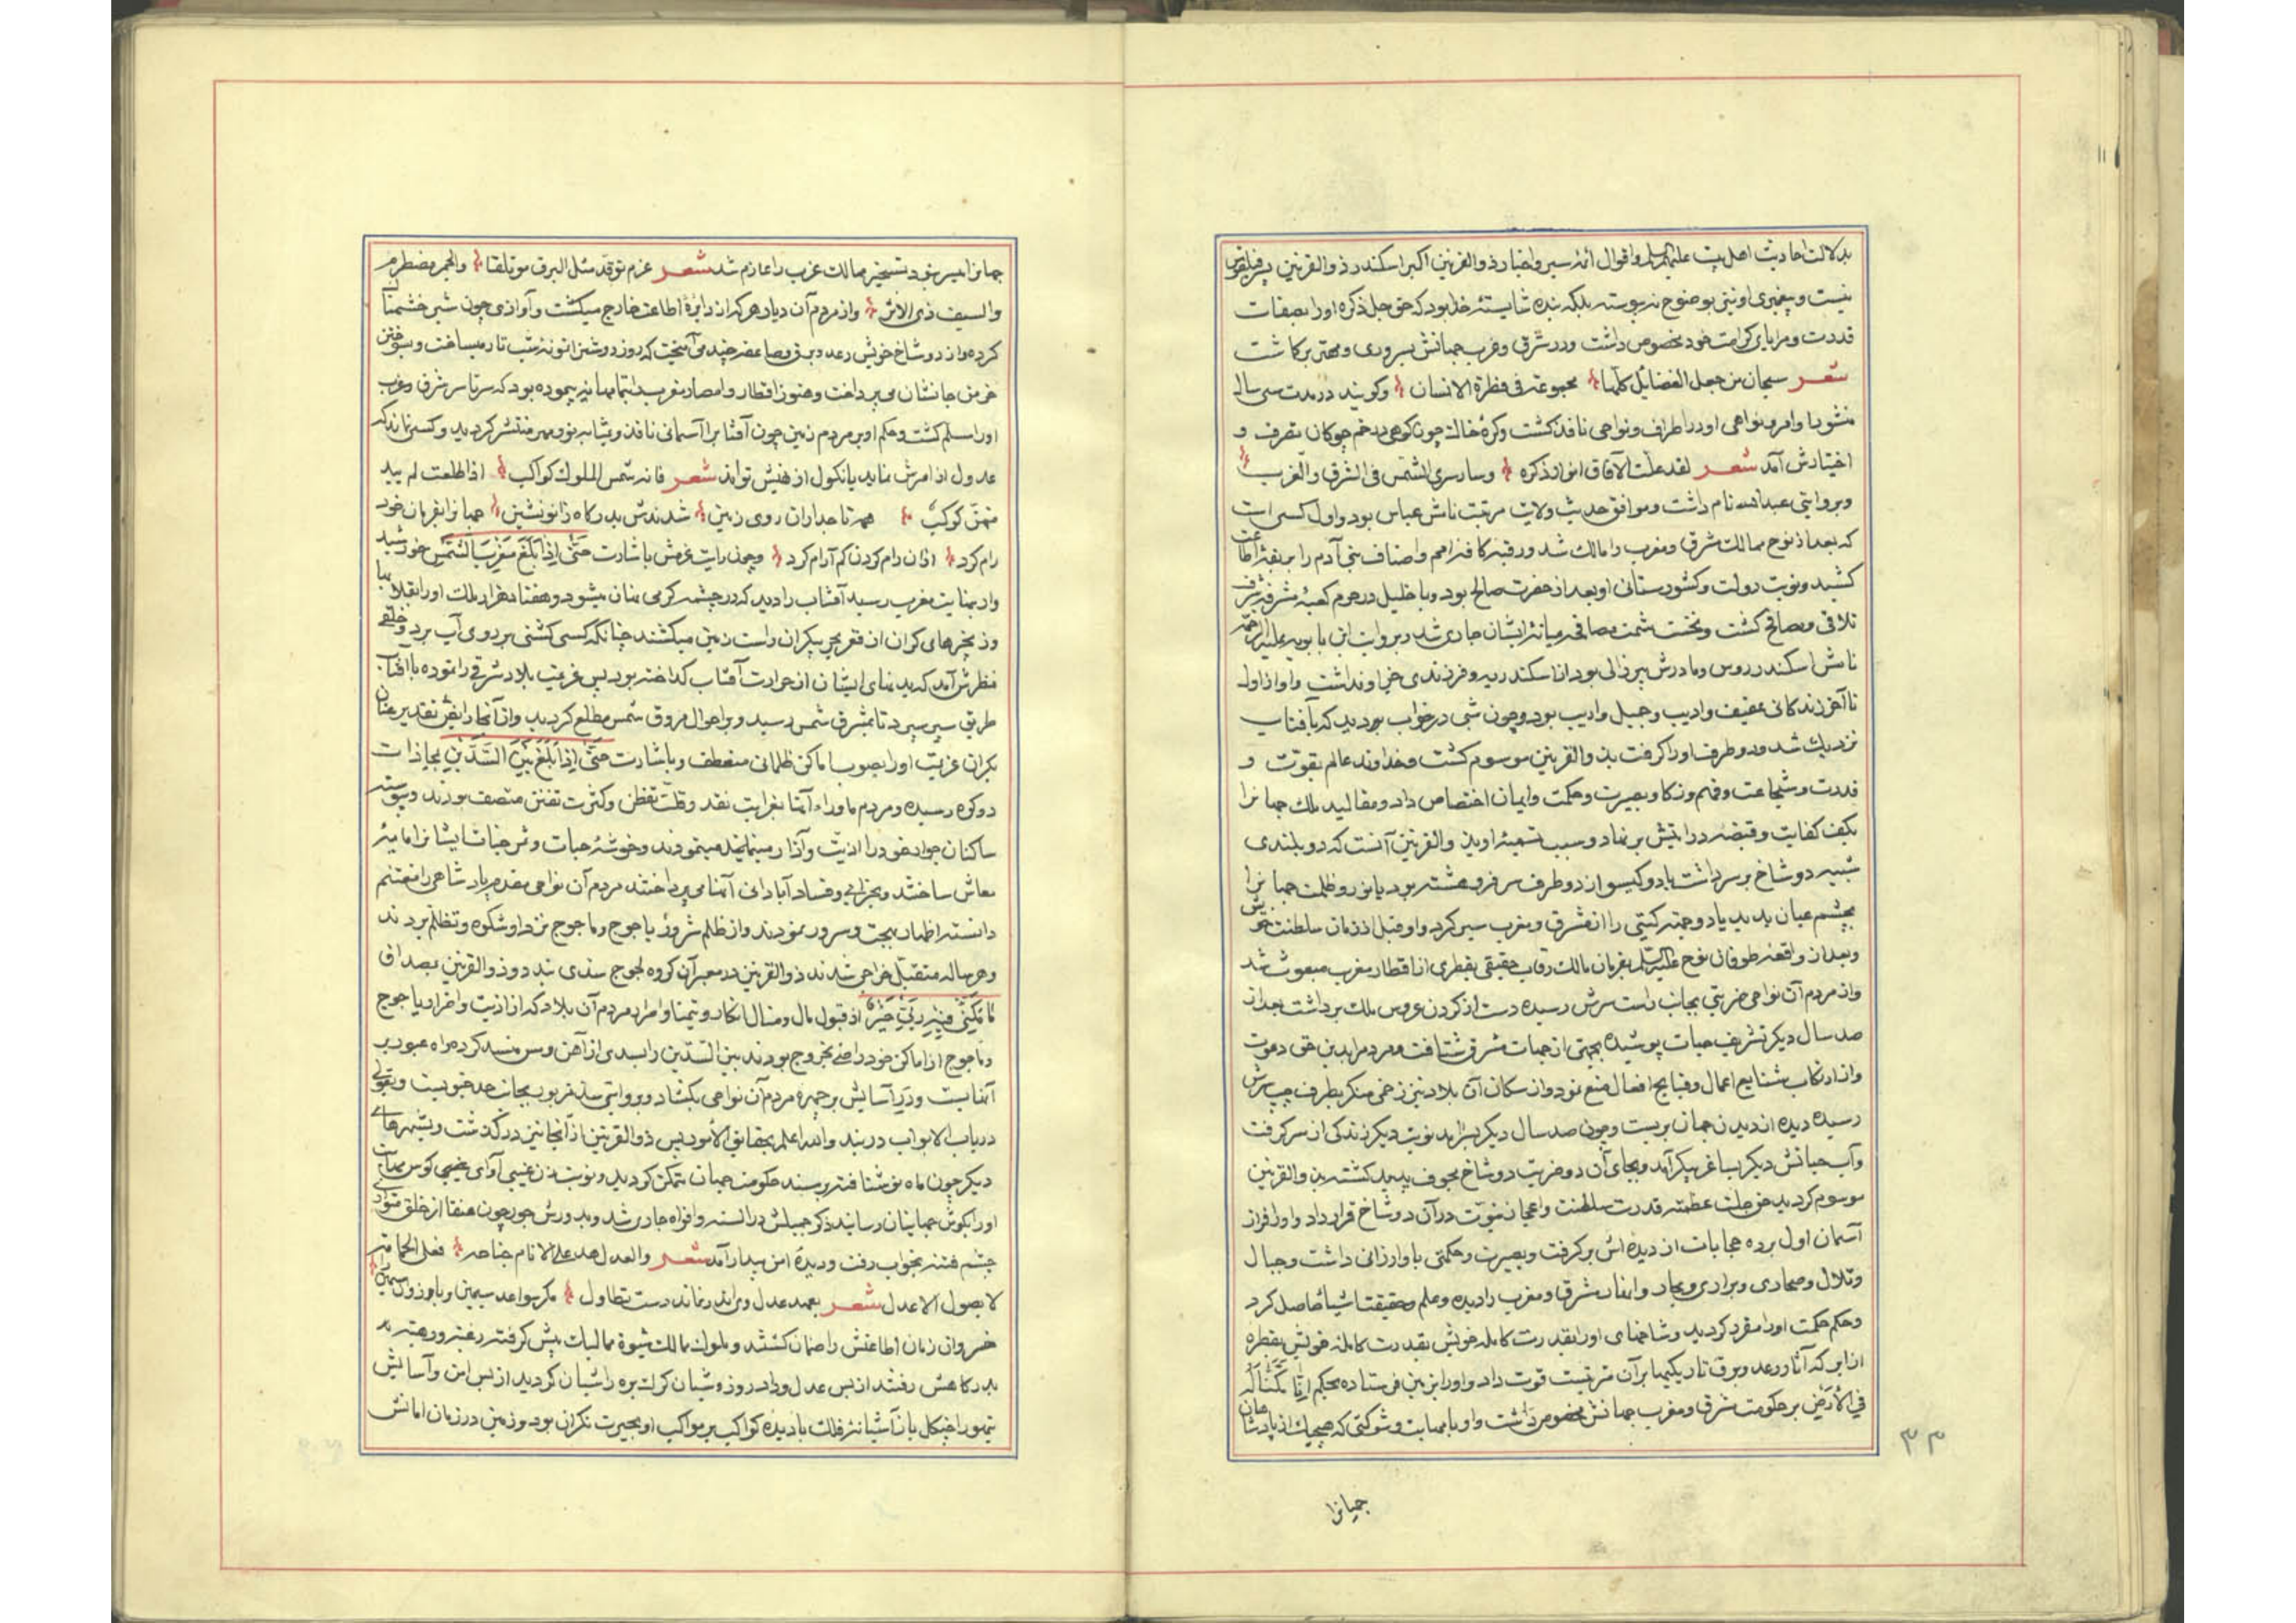 بدلالت احادیث اهل بیت علیهم السلم و اقوال ائمه سیر و اخبار ذو القرنین اکبر اسکندر ذو القرنین پسر فیلقوس
نیست و پیغمبری او نیز بوضوح نه پیوسته بلکه بنده شایسته خدا بود که حق جل ذکره او را بصفات
قدرت و مزایای کرامت خود مخصوص داشت و در شرق و غرب جهانش بسروری و مهتری برکاشت
شعر سبحان من جعل الفضایل کلها مجموعة فی فطرة الانسان و کویند در مدت سی سال
منشور اوامر و نواهی او در اطراف و نواحی نافذ کشت و کره خاک چون کوهی در خم چوکان تصرف و
اختیارش آمد شعر لقد علت الآفاق انوار ذکره و سار سری الشمس فی الشرق و الغرب
و بروایتی عبدالله نام داشت و موافق حدیث ولایت مرتبت نامش عیاش بود و اول کسی است
که بعد از نوح ممالک شرق و مغرب را مالک شد و رقبه کافه امم و اصناف بنی آدم را بربقه اطاعت
کشید و نوبت دولت و کشورستانی او بعد از حضرت صالح بود و با خلیل در حرم کعبه مشرفه شرف
تلاقی و مصافح کشت و نخست سمت مصافحه میانه ایشان جاری شد و بروایت ابن بابویه علیه الرحمه
نامش اسکندروس و مادرش پیر زالی بود از اسکندریه و فرزندی جز او نداشت و او از اول
تا آخر زندکانی عفیف و ادیب و جمیل و ادیب بود و چون شبی در خواب بدید که بآفتاب
نزدیک شد و دو طرف او را کرفت بذو القرنین موسوم کشت و خداوند عالم بقوت و
قدرت و شجاعت و فهم و زکا و بصیرت و حکمت و ایمان اختصاص داد و مقالید ملک جهانرا
بکف کفایت و قبضه درایتش بر نهاد و سبب تسمیه او بذو القرنین آنست که دو بلندی
شبیه دو شاخ بر سر داشت یا دو کیسو از دو طرف سر فرو هشته بود یا نور و ظلمت جهانرا
بچشم عیان بدید یا دو جهته کیتی را از مشرق و مغرب سیر کرد و او قبل از زمان سلطنت خویش
و بعد از واقعه طوفان نوح علیه السلم بفرمان مالک رقاب حقیقی بقطری از اقطار مغرب مبعوث شد
و از مردم آن نواحی ضربتی بجانب راست سرش رسیده دست از کردن عروس ملک برداشت بعد از
صد سال دیکر تشریف حیات پوشیده بجهتی از جهات مشرق شتافت و مردم را بدین حق دعوت
و از ارتکاب شنایع اعمال و قبایح افعال منع نمود و از سکان آن بلاد نیز زخمی منکر بطرف چپ سرش
رسیده دیده از دیدن جهان بربست و چون صد سال دیکر بسر آمد نوبت دیکر زندکی از سر کرفت
و آب حیاتش دیکر بساغر پیکر آمد و بجای آن دو ضربت دو شاخ مجوف پدید کشته بذو القرنین
موسوم کردید حق جلت عظمته قدرت سلطنت و اعجاز نبوت در آن دو شاخ قرار داد و او را فراز
آسمان اول برده حجابات از دیده اش بر کرفت و بصیرت و حکمتی باو ارزانی داشت و جبال
و تلال و صحاری و براری و بحار و انهار مشرق و مغرب را دیده و علم و حقیقت اشیا حاصل کرد
و حکم حکمت او را مقرر کردید و شاخهای او را بقدرت کامله خویش بقدرت کامله خویش بقطره
از ابر که آثار رعد و برق تاریکیها بر آن مترتبست قوت داد و او را بزمین فرستاده بحکم انا مکنا له
فی الارض بر حکومت شرق و مغرب جهانش مخصوص داشت و او با مهابت و شوکتی که هیچیک از پادشاهان
جهانرا
جهانرا میسر نبود تسخیر ممالک غرب را عازم شد شعر عزم توقد مثل البرق موتلقا و الجمر مضطرم
و السیف ذی الاثر و از مردم آن دیار هر که از دایره اطاعت خارج میکشت و آوازی چون شیر خشمناک
کرده و از دو شاخ خویش رعد و برق و صاعقه چند می آمیخت که روز روشنرا نمونه شب تار میساخت و بسوختن
خرمن جانشان می پرداخت و هنوز اقطار و امصار مغرب بتمامها نپیموده بود که سرتاسر شرق و غرب
او را مسلم کشت و حکم او بر مردم زمین چون آفتابرا آسمانی نافذ و بمثابه نور مهر منتشر کردید و کسی نماند که
عدول از امرش نماید یا نکول از نهیش تواند شعر فانه شمس الملوک کواکب اذا طلعت لم یبد
منهن کوکب همه تاجداران روی زمین شدندش بدرکاه زانونشین جهانرا بفرمان خود
رام کرد از آن رام کردن کم آرام کرد و چون رایت عزمش باشارت حتی اذا بلغ مغرب الشمس خورشید
وار بنهایت مغرب رسید آفتاب را دید که در چشمه کرمی نهان میشود و هفتاد هزار ملک او را بقلابها
و زنجیرهای کران از قعر بحر بیکران راست زمین میکشند چنانکه کسی کشتی بر روی آب برد و خلقی
بنظرش آمد که بدنهای ایشان از حرارت آفتاب کداخته بود پس عزیمت بلاد شرقی را نموده با آفتاب
طریق سیر سپرد تا بمشرق شمس رسید و بر احوال مروق شمس مطلع کردید و از آنجا رایض تقدیر عنان
بکران عزیمت او را بصوب اماکن ظلمانی منعطف و باشارت حتی اذا بلغ بین السدین بمحاذات
دو کوه رسیده و مردم ماوراء آنها بغرابت نقد و قلت تفطن و کثرت تفنن متصف بودند و پیوسته
ساکنان جوار خود را اذیت و آزار مینمایند مینمودند و خوشه حبات و ثمر جنات ایشانرا مایه
معاش ساختند و بخرابی و فساد آبادانی آنها می پرداختند مردم آن نواحی مقدم پادشاهی را مغتنم
دانسته اظهار بهجت و سرور نمودند و از ظلم شرور یاجوج و ماجوج نزد او شکوه و تظلم بردند
و هر ساله متقبل خراجی شدند ذو القرنین در معبر آن کروه لجوج سدی بندد و ذو القرنین بمصداق
ما مکنی فیه ربی خیر از قبول مال و منال انکار و بتمنا و امرار مردم آن بلاد که از اذیت و اضرار یاجوج
و ماجوج از اماکن خود راضی بخروج بودند بین السدین را بسدی از آهن و مس منسد کرده راه عبور بر
آنها ببست و در آسایش بر چهره مردم آن نواحی بکشاد و بروایتی سد مزبور بجانب حد جنوبست و بقولی
در باب الابواب دربند والله اعلم بحقایق الامور پس ذو القرنین از آنجا نیز در کذشت و بشهرهای
دیکر چون ماه نو شتافته بر مسند حکومت جهان متمکن کردید و نوبت زن غیبی آوای کوس
او را بکوش جهانیان رسانید ذکر جمیلش در السنه و افواه جاری شد و بدورش جور چون عنقا از خلق متواری
چشم فتنه بخواب رفت و دیده امن بیدار آمد شعر والعدل مد علی الانام جناحه فعلی الحمامة
لا یصول الاجدل شعر بعهد عدل وی اندر نماند دست تطاول مکر سواعد سیمین و بازوان سمین را
خسروان زمان اطاعتش را ضمان کشتند و ملوک ممالک شیوه ممالیک پیش کرفته رغبة و رهبة بر
بدرکاهش رفتند از بس عدل و داد روز و شبان کرک بره را شبان کردید از بس امن و آسایش
تیهو را چنکل باز آشیانه فلک با دیده کواکب بر مواکب او بحیرت نکران بود و زمین در زمان امانش
۳۳